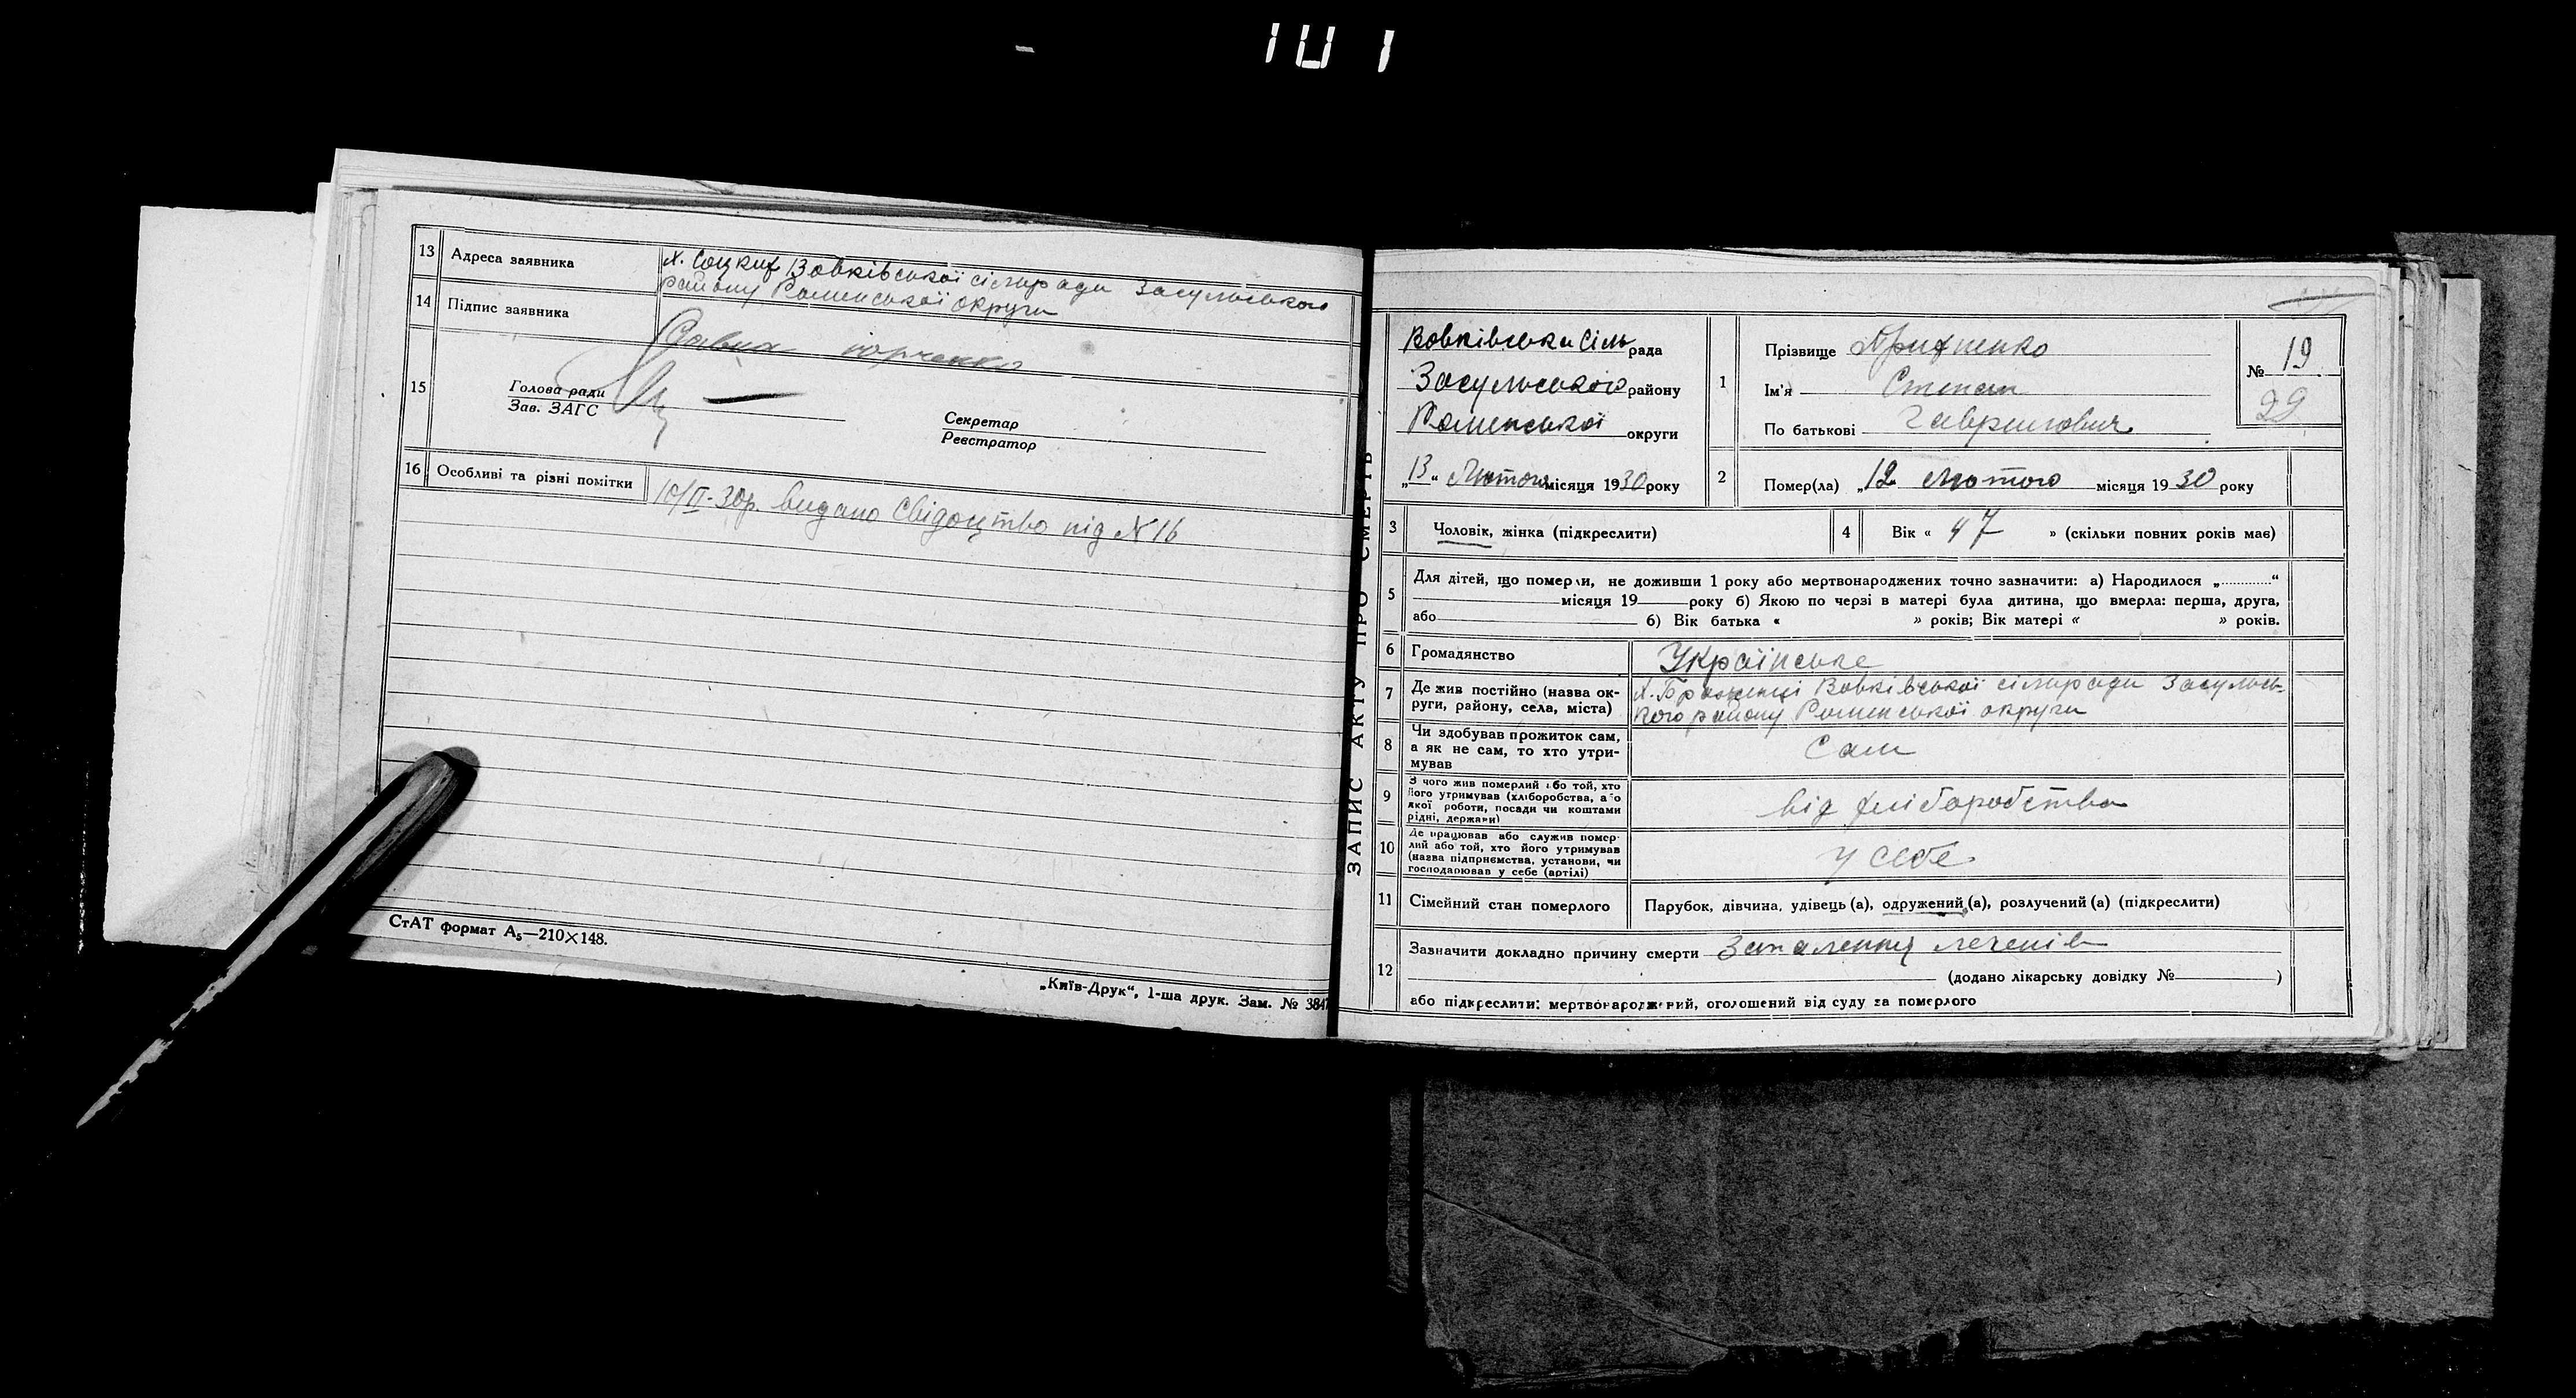 101
13 Адреса заявника х. Соцких Вовківської сільради Засульського
району Роменської округи
14 Підпис заявника Савка
15 Голова ради
Зав. ЗАГС
Секретар
Реєстратор
16 Особливі та різні помітки 10/II-30р. видано свідоцтво під №16
СтАТ формат А5—210×148.
„Київ-Друк“, 1-ша друк. Зам. № 3847
ЗАПИС АКТУ ПРО СМЕРТЬ
Вовківська сільрада
Засульського району
Роменської округи
„13“ Лютого місяця 1930 року
1 Прізвище
Ім'я Степан
По батькові Гаврилович
№ 19
29
2 Помер(ла) „12 Лютого місяця 1930 року
3 Чоловік, жінка (підкреслити)
4 Вік « 47 » (скільки повних років має)
5 Для дітей, що померли, не доживши 1 року або мертвонароджених точно зазначити: а) Народилося „............“
місяця 19 року б) Якою по черзі в матері була дитина, що вмерла: перша, друга,
або б) Вік батька « » років; Вік матері « » років.
6 Громадянство Українське
7 Де жив постійно (назва округи, району, села, міста) х. Вовківської сільради Засульсь-
кого району Роменської округи
8 Чи здобував прожиток сам,
а як не сам, то хто утри-
мував Сам
9 З чого жив померлий або той, хто
його утримував (хліборобства, або
якої роботи, посади чи коштами
рідні, держави) від хліборобства
10 Де працював або служив помер-
лий або той, хто його утримував
(назва підприємства, установи, чи
господарював у себе (артілі) у себе
11 Сімейний стан померлого Парубок, дівчина, удівець (а), одружений (а), розлучений (а) (підкреслити)
12 Зазначити докладно причину смерти Запалення легенів
(додано лікарську довідку № )
або підкреслити: мертвонароджений, оголошений від суду за померлого